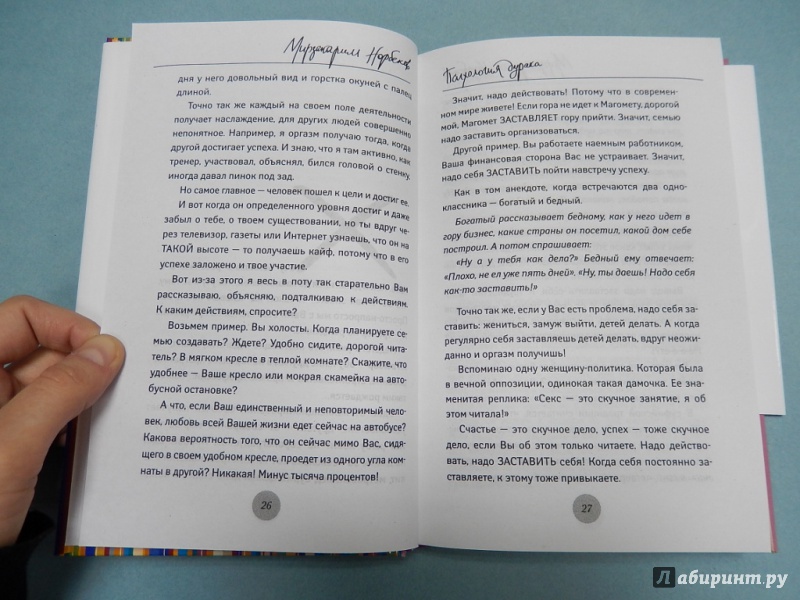 Мирзакарим Норбеков
дня у него довольный вид и горстка окуней с палец
длиной.
Точно так же каждый на своем поле деятельности
получает наслаждение, для других людей совершенно
непонятное. Например, я оргазм получаю тогда, когда
другой достигает успеха. И знаю, что я там активно, как
тренер, участвовал, объяснял, бился головой о стенку,
иногда давал пинок под зад.
Но самое главное — человек пошел к цели и достиг ее.
И вот когда он определенного уровня достиг и даже
забыл о тебе, о твоем существовании, но ты вдруг че-
рез телевизор, газеты или Интернет узнаешь, что он на
ТАКОЙ высоте — то получаешь кайф, потому что в его
успехе заложено и твое участие.
Вот из-за этого я весь в поту так старательно Вам
рассказываю, объясняю, подталкиваю к действиям.
К каким действиям, спросите?
Возьмем пример. Вы холосты. Когда планируете се-
мью создавать? Ждете? Удобно сидите, дорогой чита-
тель? В мягком кресле в теплой комнате? Скажите, что
удобнее — Ваше кресло или мокрая скамейка на авто-
бусной остановке?
А что, если Ваш единственный и неповторимый чело-
век, любовь всей Вашей жизни едет сейчас на автобусе?
Какова вероятность того, что он сейчас мимо Вас, сидя-
щего в своем удобном кресле, проедет из одного угла ком-
наты в другой? Никакая! Минус тысяча процентов!
26
Балхология дурака
Значит, надо действовать! Потому что в современ-
ном мире живете! Если гора не идет к Магомету, дорогой
мой, Магомет ЗАСТАВЛЯЕТ гору прийти. Значит, семью
надо заставить организоваться.
Другой пример. Вы работаете наемным работником,
Ваша финансовая сторона Вас не устраивает. Значит,
надо себя ЗАСТАВИТЬ пойти навстречу успеху.
Как в том анекдоте, когда встречаются два одно-
классника — богатый и бедный.
Богатый рассказывает бедному, как у него идет в
гору бизнес, какие страны он посетил, какой дом себе
построил. А потом спрашивает:
«Ну а у тебя как дела?» Бедный ему отвечает:
«Плохо, не ел уже пять дней», «Ну, ты даешь! Надо себя
как-то заставить!»
Точно так же, если у Вас есть проблема, надо себя за-
ставить: жениться, замуж выйти, детей делать. А когда
регулярно себя заставляешь детей делать, вдруг неожи-
данно и оргазм получишь!
Вспоминаю одну женщину-политика. Которая была
в вечной оппозиции, одинокая такая дамочка. Ее зна-
менитая реплика: «Секс — это скучное занятие, я об
этом читала!»
Счастье — это скучное дело, успех — тоже скучное
дело, если Вы об этом только читаете. Надо действо-
вать, надо ЗАСТАВИТЬ себя! Когда себя постоянно за-
ставляете, к этому тоже привыкаете.
27
Лабиринт.ру